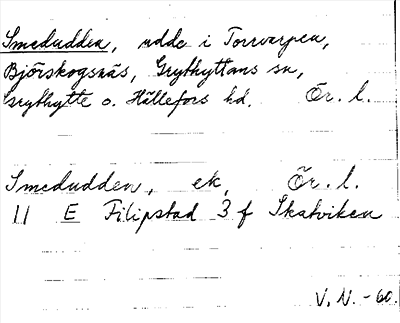 Smedudden, udde i Torrvarpen,
Björskogsnäs, Grythyttans sn,
Grythytte o. Hällefors hd. Ör. l.
Smedudden, ek, Ör. l.
11 E Filipstad 3 f Skatviken
V. N. -60.